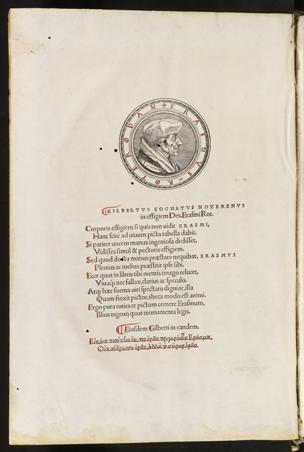 ERASMVS ROTERODAMVS
GILBERTVS COGNATVS NOZERENVS
in effigiem Des. Erasmi Rot.
Corporis effigiem si quis non uidit ERASMI,
Hanc scitè ad uiuum picta tabella dabit.
Si pariter uocem manus ingeniosa dedisset,
Vidisses simul & pectoris effigiem.
Sed quod docta manus præstare nequibat, ERASMVS
Plenius ac melius præstitit ipse sibi.
Ecce quot in libris tibi mentis imago relucet,
Viuaque nec fallax, clarius ac speculo.
Atque hæc forma uiri spectatu dignior, illa
Quam finxit pictor, theca modo est animi.
Ergo puta toties te pictum cernere Erasmum,
Illius ingenij quot monumenta legis.
Eiusdem Gilberti in eandem.